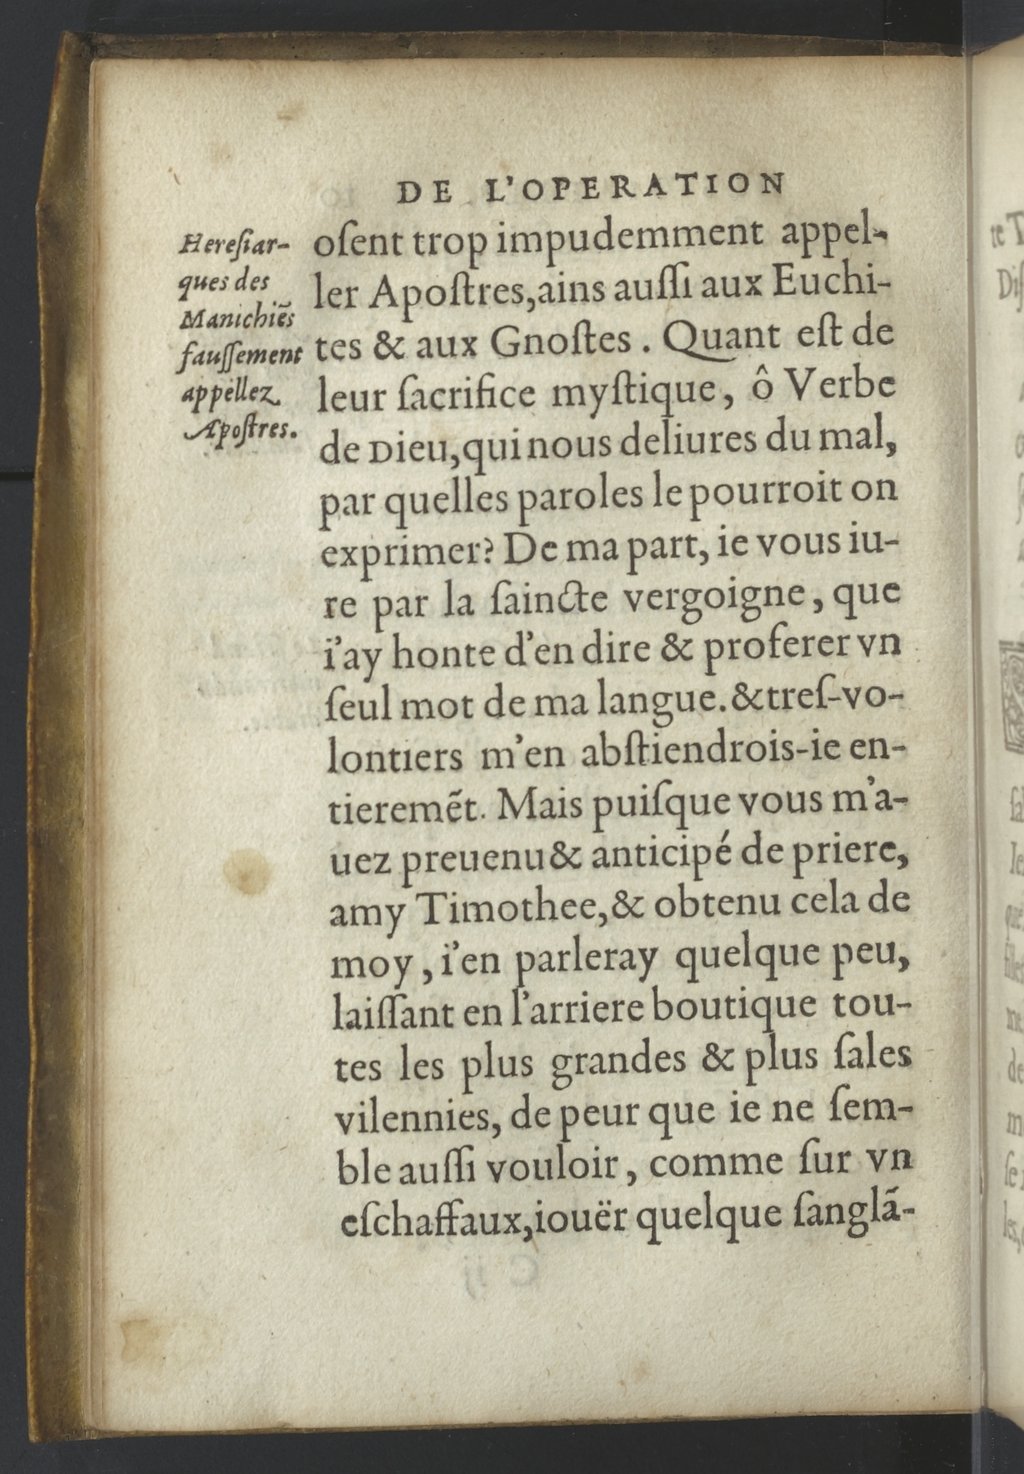 DE L'OPERATION
Hereſiar-
ques des
Manichiẽs
fauſſement
appellez
Apoſtres.
oſent trop impudemment appel-
ler Apoſtres,ains auſſi aux Euchi-
tes & aux Gnoſtes . Quant eſt de
leur ſacrifice myſtique, ô Verbe
de Dieu,qui nous deliures du mal,
par quelles paroles le pourroit on
exprimer? De ma part, ie vous iu-
re par la ſaincte vergoigne, que
i'ay honte d'en dire & proferer vn
ſeul mot de ma langue.&treſ-vo-
lontiers m'en abſtiendrois-ie en-
tieremẽt. Mais puiſque vous m'a-
uez preuenu& anticipé de priere,
amy Timothee,& obtenu cela de
moy , i'en parleray quelque peu,
laiſſant en l'arriere boutique tou-
tes les plus grandes & plus ſales
vilennies, de peur que ie ne ſem-
ble auſſi vouloir, comme ſur vn
eſchaffaux,iouër quelque ſanglã-